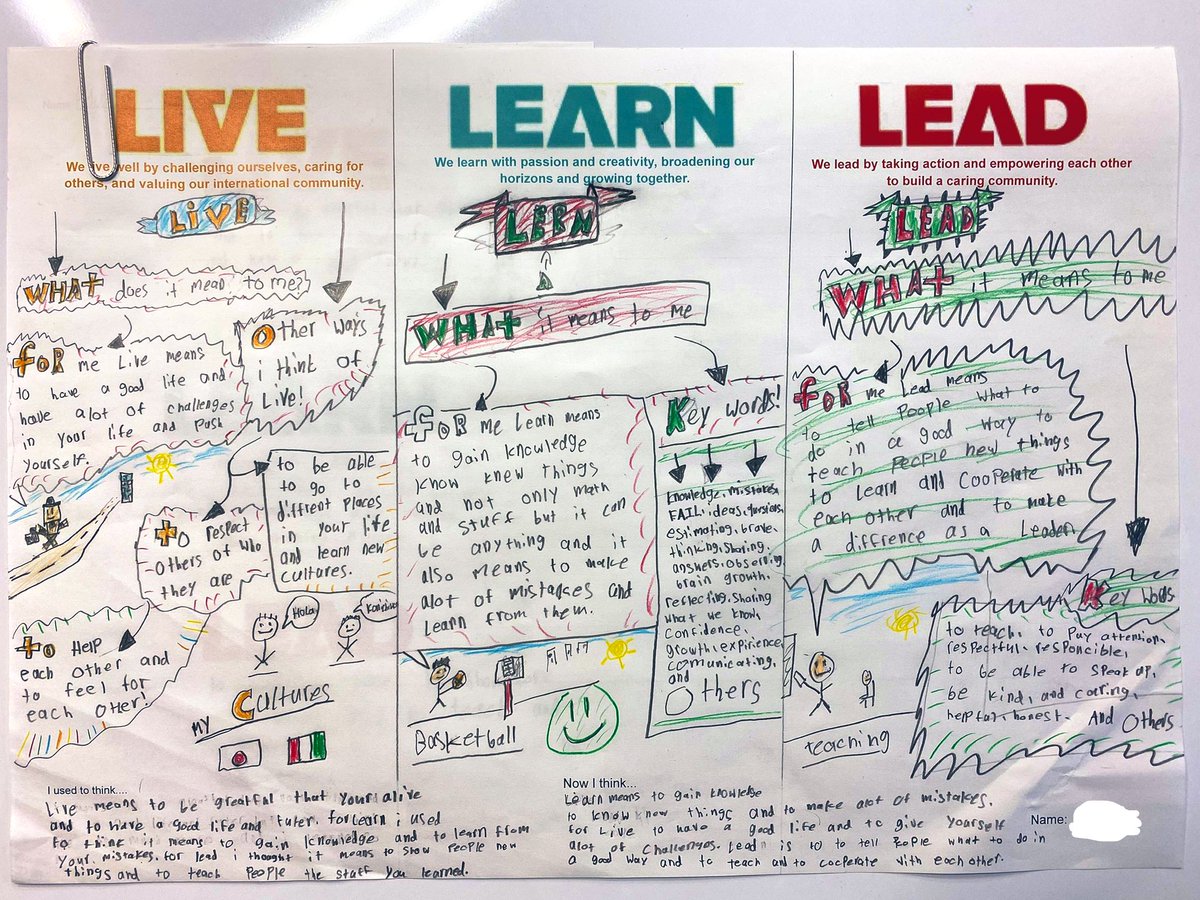 LIVE
We live well by challenging ourselves, caring for
others, and valuing our international community.
LiVE
WHAt does it mean to me?
foR me Live means
to have a good life and
have alot of challenges
in your life and push
yourself.
Other ways
i think of
Live!
to be able
to go to
diffrent places
in your life
and learn new
cultures.
to respect
others of who
they are
to Help
each other and
to feel for
each other!
Hola
my Cultures
LEARN
We learn with passion and creativity, broadening our
horizons and growing together.
LERN
A
WHAt it means to me
foR me Learn means
to gain knowledge
know knew things
and not only math
and stuff but it can
be anything and it
also means to make
alot of mistakes and
learn from them.
Key words!
knowledge, mistakes,
FAIL, ideas, questions,
estimating, brave,
thinking, sharing,
answers, observing,
brain growth,
reflecting, sharing
what we know,
confidence,
growth, experience,
comunicating,
and
Others
Basketball
LEAD
We lead by taking action and empowering each other
to build a caring community.
LEAD
WHAt it means to me
foR me Lead means
to tell people what to
do in a good way to
teach people new things
to learn and cooperate with
each other and to make
a diffrence as a leader.
Key words
to teach, to pay attention,
respectful, responcible,
to be able to speak up,
be kind, and caring,
helpful, honest. And Others
teaching
I used to think....
Live means to be greatful that your alive
and to have a good life and for learn i used
to think it means to gain knowledge and to learn from
your mistakes. for lead i thought it means to show people new
things and to teach people the stuff you learned.
Now I think....
Learn means to gain knowledge
to know knew things and to make alot of mistakes.
for Live to have a good life and to give yourself
alot of challenges. Lead is to to tell people what to do in
a good way and to teach and to cooperate with each other.
Name: